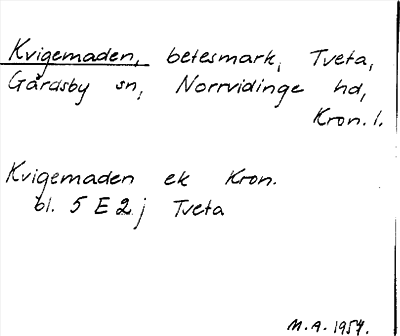 Kvigemaden, betesmark, Tveta,
Gårdsby sn, Norrvidinge hd,
Kron. l.
Kvigemaden ek Kron.
bl. 5 E 2 j Tveta
M.A. 1957.